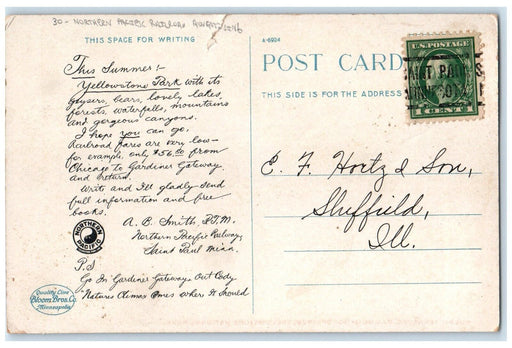 30 - NORTHERN PACIFIC RAILROAD
THIS SPACE FOR WRITING
A-6924
POST CARD
THIS SIDE FOR THE ADDRESS
U.S. POSTAGE
1 CENT 1
This Summer:-
Yellowstone Park with its
geysers, bears, lovely lakes,
forests, waterfalls, mountains
and gorgeous canyons.
I hope you can go.
Railroad fares are very low-
for example, only $56.50 from
Chicago to Gardiner Gateway
and return.
Write and I'll gladly send
full information and free
books.
A. B. Smith, P.T.M.
Northern Pacific Railway,
Saint Paul Minn.
NORTHERN
PACIFIC
P.S
Go In Gardiner Gateway Out Cody
"Natures Climax Comes Where It Should
Quality Line
Bloom Bros. Co.
Minneapolis
E. F. Hoitz & Son,
Sheffield,
Ill.